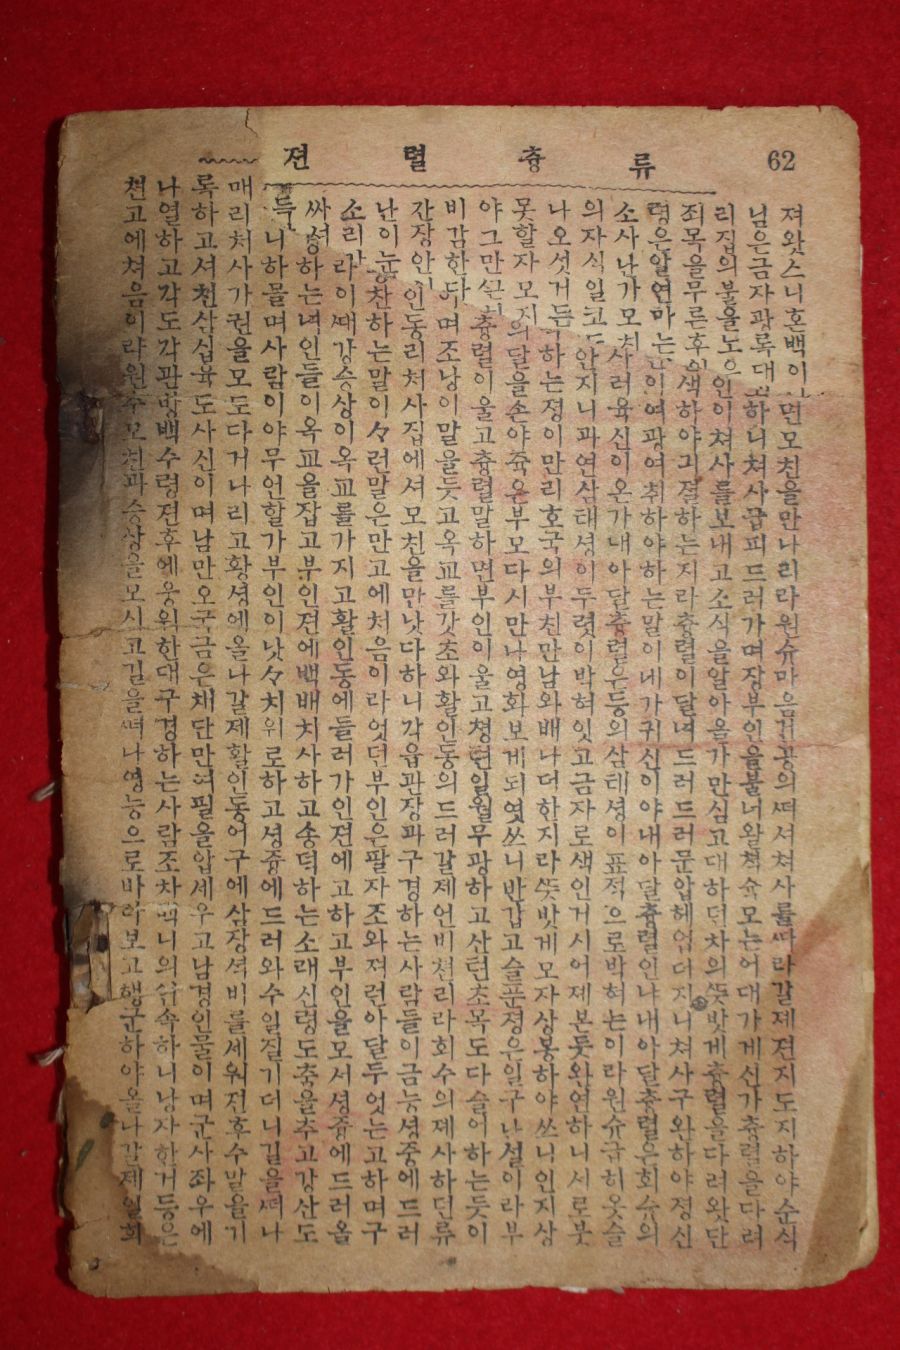 62 류츙렬젼
져왓스니혼백이 면모친을만나리라원슈마음 의 셔쳐사를따라갈제젼지도지하야순식
님은금자광록대 하니쳐사급피드러가며장부인을불너왈 슉모는어대가게신가츙렬을다려
리집의불을노 인이쳐사를보내고소식을알아올가만심고대하던차의뜻밧게츙렬을다려왓단
죄목을무른후 색하야긔졀하는지라츙렬이달녀드러드러문압헤업더지니쳐사구완하야졍신
령은알연마는 이여광여취하야하는말이네가귀신이야내아달츙렬인냐내아달츙렬은회슈의
소사난가모 사러육신이온가내아달츙렬은등의삼태셩이표적으로박혀는이라원슈급히옷슬
의자식일 안지니과연삼태셩이두렷이박혀잇고금자로색인거시어제본듯완연하니셔로붓
나오섯거든 하는졍이만리호국의부친만남와배나더한지라뜻밧게모자상봉하야쓰니인지상
못할자모지 의달을손야쥭은부모다시만나영화보게되엿쓰니반갑고슬푼졍은일구난셜이라부
야그만 츙렬이울고츙렬말하면부인이울고쳥련일월무광하고산련초목도다슬어하는듯이
비감한 며조낭이말을듯고옥교를갓초와활인동의드러갈제언비쳔리라회수의제사하던류
간장안 인동리쳐사집에셔모친을만낫다하니각읍관장과구경하는사람들이금능셩중에드러
난이눈 찬하는말이々런말은만고에처음이라엇던부인은팔자조와져런아달두엇는고하며구
소리 라이때강승상이옥교를가지고활인동에들러가인젼에고하고부인을모셔셩중에드러올
싸셔 셩하는녀인들이옥교을잡고부인젼에백배치사하고송덕하는소래신령도츔을추고강산도
득니하물며사람이야무언할가부인이낫々치위로하고셩즁에드러와수일질기더니길을떠나
매리처사가권을모도다거나리고황셩에올나갈제활인동어구에삼장셕비를세워젼후수말을기
록하고셔쳔삼십육도사신이며남만오국금은채단만여필을압세우고남경인물이며군사좌우에
나열하고각도각관방백수령젼후에옹위한대구경하는사람조차백니의 속하니낭자한거동은
쳔고에쳐음이라원수모친과승상을모시고길을떠나영능으로바라보고행군하야올나갈제일희